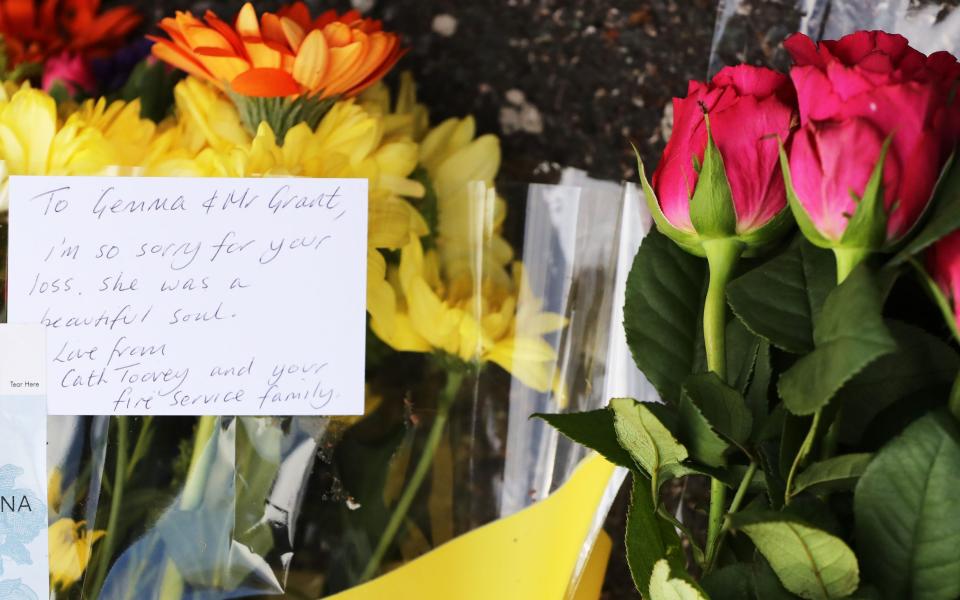 To Gemma & Mr Grant,
i'm so sorry for your
loss. she was a
beautiful soul.
Love from
Cath Toovey and your
fire service family.
Tear Here
NA